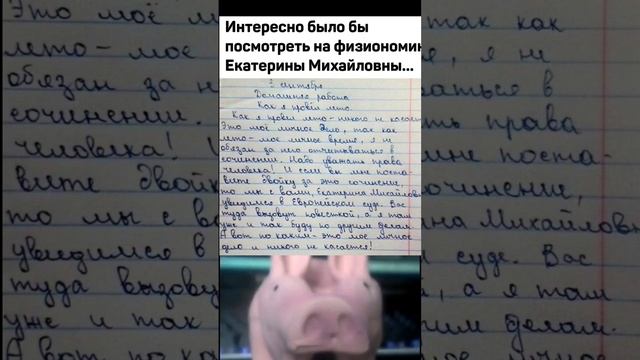 Интересно было бы
посмотреть на физиономию
Екатерины Михайловны...
2 сентября
Домашняя работа
Как я провёл лето.
Как я провёл лето - никого не касается
Это моё личное дело, так как
лето - моё личное время, я не
обязан за него отчитываться в
сочинении. Надо уважать права
человека! И если вы мне поста-
вите двойку за это сочинение,
то мы с вами, Екатерина Михайловн
увидимся в Европейском суде. Вас
туда вызовут повесткой, а я там
уже и так буду по другим делам
А вот по каким - это моё личное
дело и никого не касается!